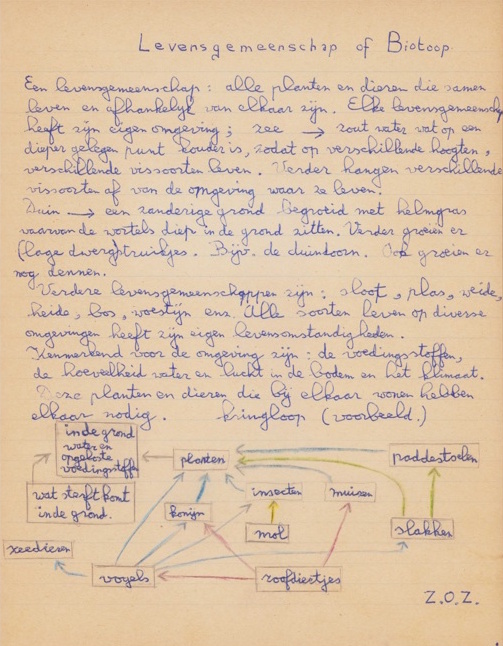 Levensgemeenschap of Biotoop.
Een levensgemeenschap: alle planten en dieren die samen
leven en afhankelijk van elkaar zijn. Elke levensgemeenschap
heeft zijn eigen omgeving; zee → zout water wat op een
dieper gelegen punt kouder is, zodat op verschillende hoogten,
verschillende vissoorten leven. Verder hangen verschillende
vissoorten af van de omgeving waar ze leven.
Duin → een zanderige grond begroeid met helmgras
waarvan de wortels diep in de grond zitten. Verder groeien er
(lage dwerg)struikjes. Bijv. de duindoorn. Ook groeien er
nog dennen.
Verdere levensgemeenschappen zijn: sloot, plas, weide,
heide, bos, woestijn ens. Alle soorten leven op diverse
omgevingen heeft zijn eigen levensomstandigheden.
Kenmerkend voor de omgeving zijn: de voedingsstoffen,
de hoeveelheid water en lucht in de bodem en het klimaat.
Deze planten en dieren die bij elkaar wonen hebben
elkaar nodig. kringloop (voorbeeld.)
in de grond
water en
opgeloste
voedingsstoffen
planten
paddestoelen
wat sterft komt
in de grond.
konijn
insecten
muizen
mol
slakken
zeedieren
vogels
roofdiertjes
Z.O.Z.